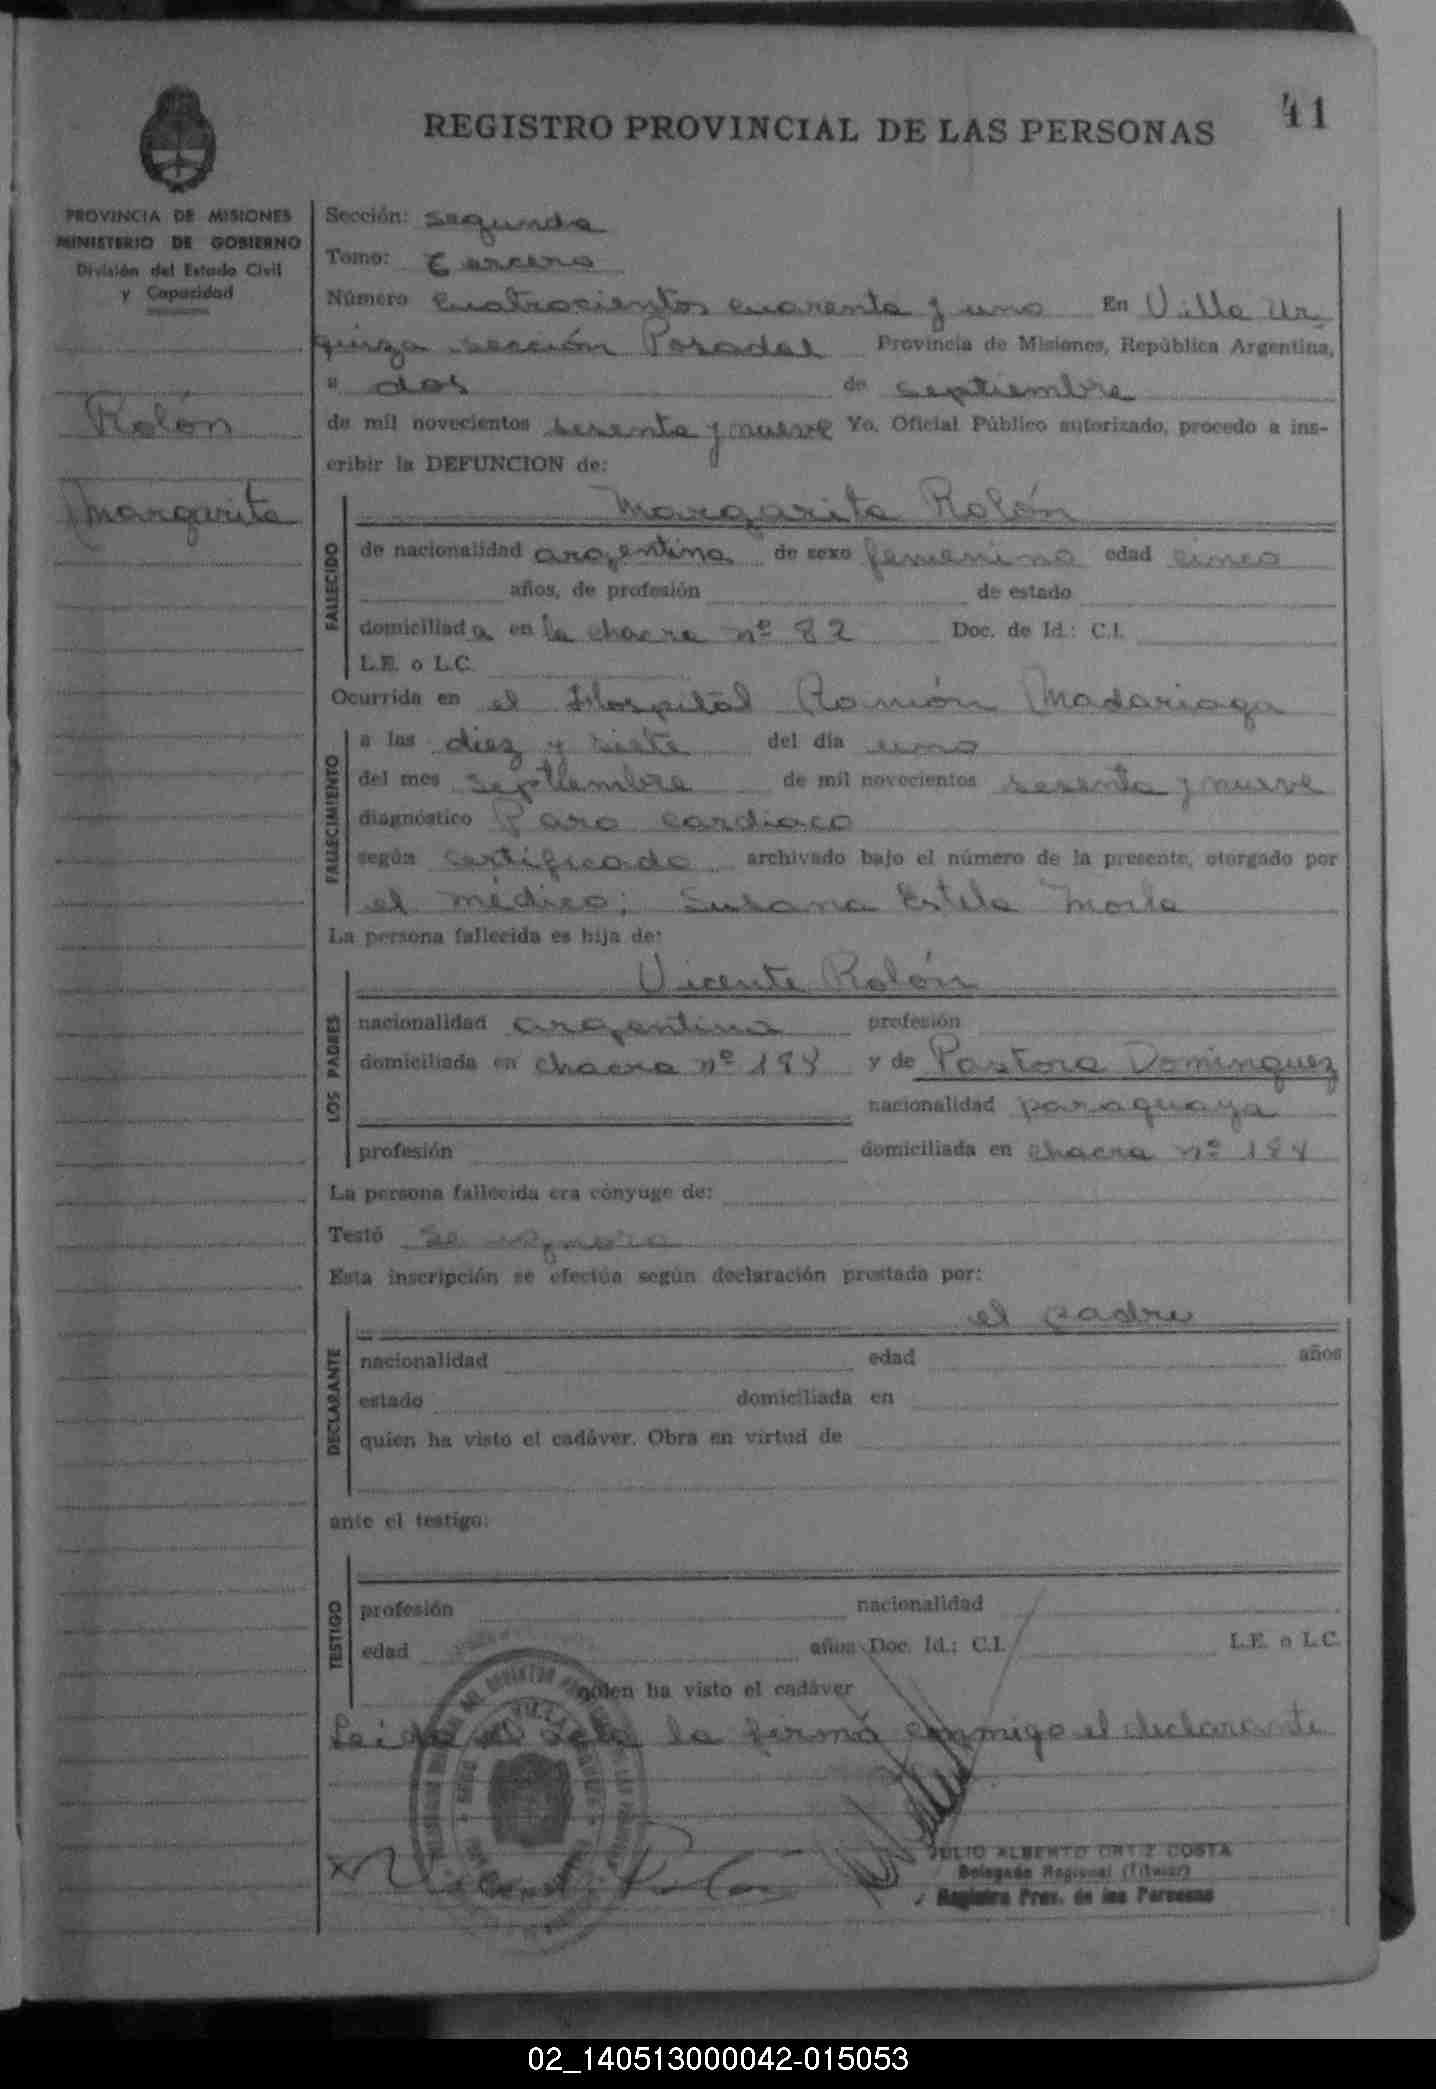 41
REGISTRO PROVINCIAL DE LAS PERSONAS
PROVINCIA DE MISIONES
MINISTERIO DE GOBIERNO
División del Estado Civil
y Capacidad
Rolón
Margarita
Sección: segunda
Tomo: Tercero
Número cuatrocientos cuarenta y uno En Villa Ur-
quiza sección Posadas Provincia de Misiones, República Argentina,
a dos de septiembre
de mil novecientos sesenta y nueve Yo, Oficial Público autorizado, procedo a ins-
cribir la DEFUNCION de:
Margarita Rolón
FALLECIDO
de nacionalidad argentina de sexo femenino edad cinco
años, de profesión de estado
domiciliada en la chacra nº 82 Doc. de Id.: C.I.
L.E. o L.C.
Ocurrida en el Hospital Ramón Madariaga
FALLECIMIENTO
a las diez y siete del día uno
del mes septiembre de mil novecientos sesenta y nueve
diagnóstico Paro cardiaco
según certificado archivado bajo el número de la presente, otorgado por
el médico; Susana Estela
La persona fallecida es hija de:
Vicente Rolón
LOS PADRES
nacionalidad argentina profesión
domiciliada en chacra nº y de Pastora Dominguez
nacionalidad paraguaya
profesión domiciliada en chacra nº
La persona fallecida era cónyuge de:
Testó se ignora
Esta inscripción se efectúa según declaración prestada por:
el padre
DECLARANTE
nacionalidad edad años
estado domiciliada en
quien ha visto el cadáver. Obra en virtud de
ante el testigo:
TESTIGO
profesión nacionalidad
edad años Doc. Id.: C.I. L.E. o L.C.
quien ha visto el cadáver
Leida el acta la firma conmigo el declarante
Rolón
JULIO ALBERTO ORTIZ COSTA
Delegado Regional (Titular)
Registro Prov. de las Personas
02_140513000042-015053